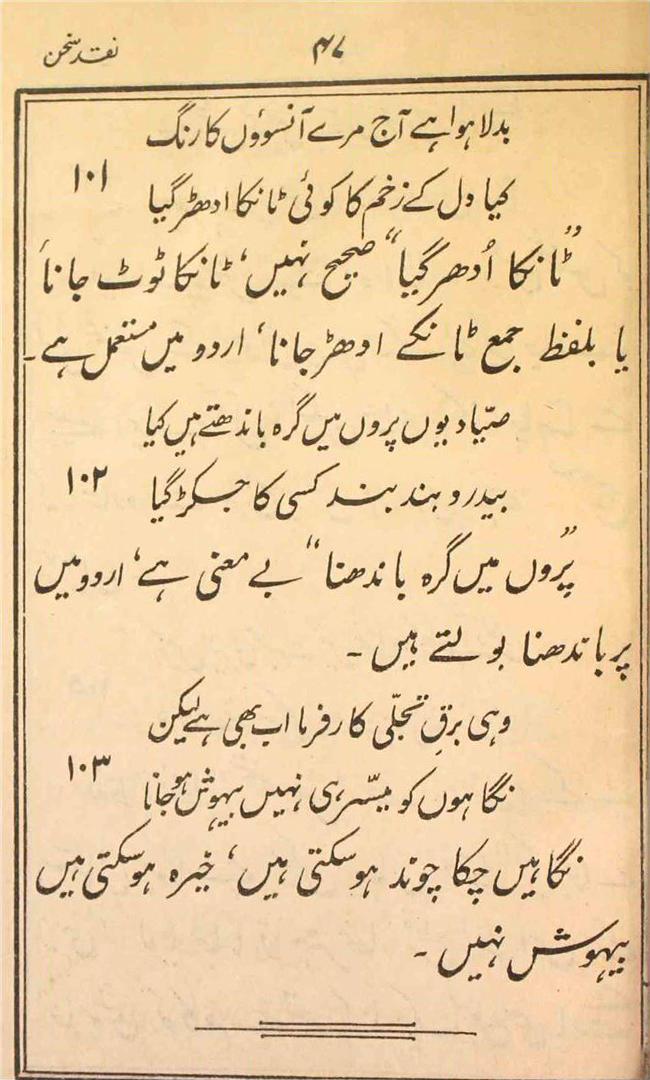 نقد سخن
۴۷
بدلا ہوا ہے آج مرے آنسوؤں کا رنگ
کیا دل کے زخم کا کوئی ٹانکا ادھڑ گیا ۱۰۱
”ٹانکا اُدھر گیا“ صحیح نہیں، ٹانکا ٹوٹ جانا
یا بلفظ جمع ٹانکے ادھڑ جانا، اردو میں مستعمل ہے۔
صیّاد یوں پروں میں گرہ باندھتے ہیں کیا
بیدرد بند بند کسی کا جکڑ گیا ۱۰۲
”پروں میں گرہ باندھنا“ بے معنی ہے، اردو میں
پر باندھنا بولتے ہیں۔
وہی برقِ تجلّی کارفرما اب بھی ہے لیکن
نگاہوں کو میسّر ہی نہیں بیہوش ہو جانا ۱۰۳
نگاہیں چکا چوند ہو سکتی ہیں، خیرہ ہو سکتی ہیں
بیہوش نہیں۔